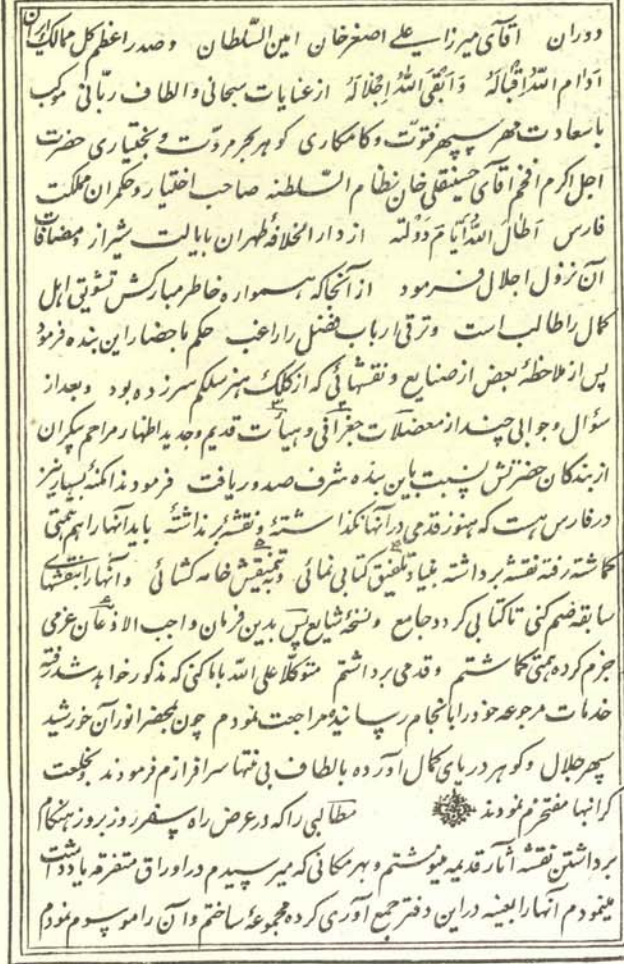 دوران آقای میرزا علی اصغر خان امین السّلطان و صدر اعظم کل ممالک ایران
اَدامَ اللّهُ اِقْبالَهُ وَاَبْقَی اللّهُ اِجْلالَهُ از عنایات سبحانی و الطاف ربّانی موکب
با سعادت مهر سپهر فتوّت و کامکاری گوهر بحر مروّت و بختیاری حضرت
اجل اکرم افخم آقای حسینقلی خان نظام السّلطنه صاحب اختیار و حکمران مملکت
فارس اَطالَ اللّهُ اَیّامَ دَوْلَتِه از دار الخلافهٔ طهران بایالت شیراز و مضافات
آن نزول اجلال فرمود از آنجا که همواره خاطر مبارکش تشویق اهل
کمال را طالب است و ترقی ارباب فضل را راغب حکم باحضار این بنده فرمود
پس از ملاحظهٔ بعض از صنایع و نقشهائی که از کلک هنر سلکم سرزده بود و بعد از
سؤال و جوابی چند از معضلات جغرافی و هیأت قدیم و جدید اظهار مراحم بیکران
از بندگان حضرتش نسبت باین بنده شرف صدور یافت فرمودند امکنهٔ بسیار نیز
در فارس هست که هنوز قدمی در آنها نگذاشتهٔ و نقشهٔ برنداشتهٔ باید آنها را هم همّتی
گماشته رفته نقشه برداشته بنیاد تلفیق کتابی نمائی و تنمیقش خامه گشائی و آنها را بنقشهای
سابقه ضم کنی تا کتابی گردد جامع و نسخهٔ شایع پس بدین فرمان واجب الاذعان عزمی
جزم کرده همّتی گماشتم و قدمی برداشتم متوکّلاً علی اللّه باماکنی که مذکور خواهد شد رفته
خدمات مرجوعه خود را بانجام رسانیده مراجعت نمودم چون بمحضر انور آن خورشید
سپهر جلال و گوهر دریای کمال آورده بالطاف بی منتها سرافرازم فرمودند و بخلعت
گرانبها مفتخرم نمودند مطالبی را که در عرض راه سفر روز بروز هنگام
برداشتن نقشه آثار قدیمه مینوشتم و بهر مکانی که میرسیدم در اوراق متفرقه یادداشت
مینمودم آنها را بعینه در این دفتر جمع آوری کرده مجموعهٔ ساختم و آن را موسوم نمودم